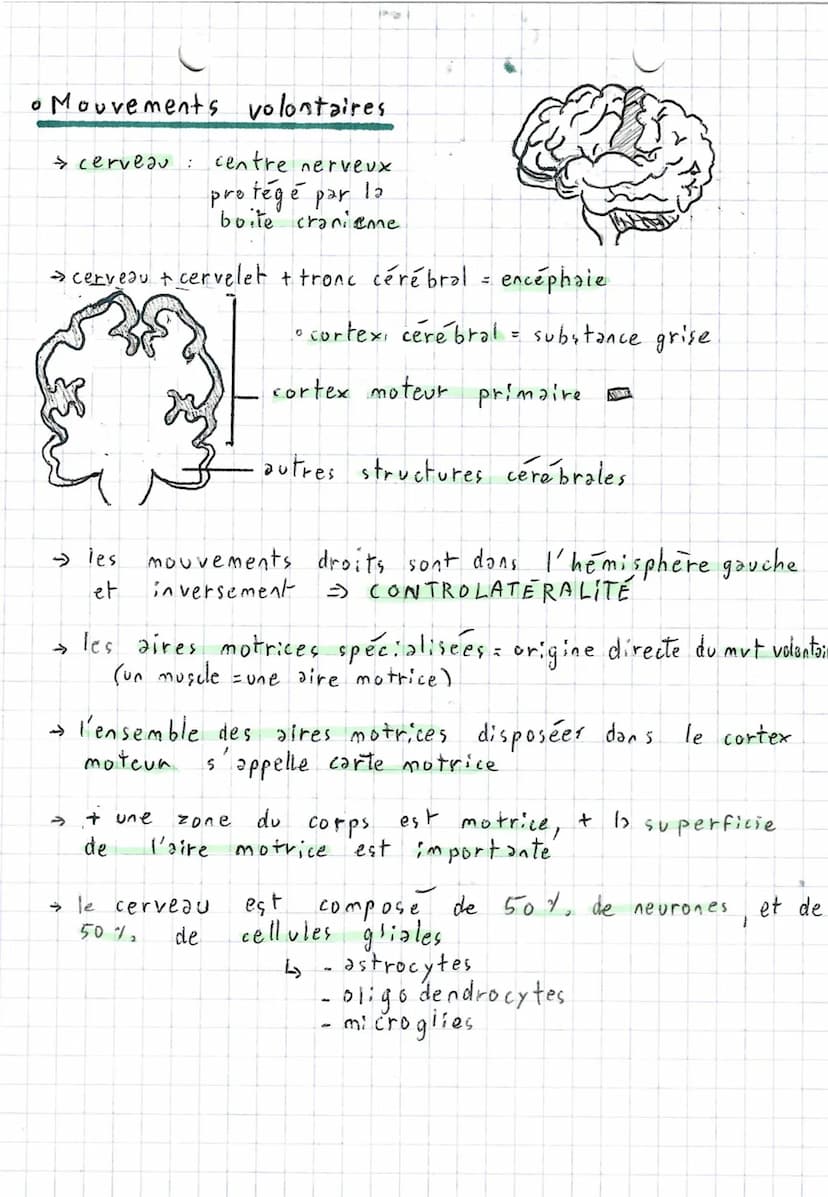 ° Mouvements volontaires
→ cerveau : centre nerveux
protégé par la
boite cranienne
→ cerveau + cervelet + tronc cérébral = encéphale
° cortex cérébral = substance grise
cortex moteur primaire
autres structures cérébrales
→ les mouvements droits sont dans l'hémisphère gauche
et inversement ⇒ CONTROLATÉRALITÉ
→ les aires motrices spécialisées = origine directe du mvt volontai
(un muscle = une aire motrice)
→ l'ensemble des aires motrices disposéer dans le cortex
moteur s'appelle carte motrice
→ + une zone du corps est motrice, + la superficie
de l'aire motrice est importante
→ le cerveau est composé de 50 % de neurones, et de
50 % de cellules gliales
↳ - astrocytes
- oligodendrocytes
- microglies